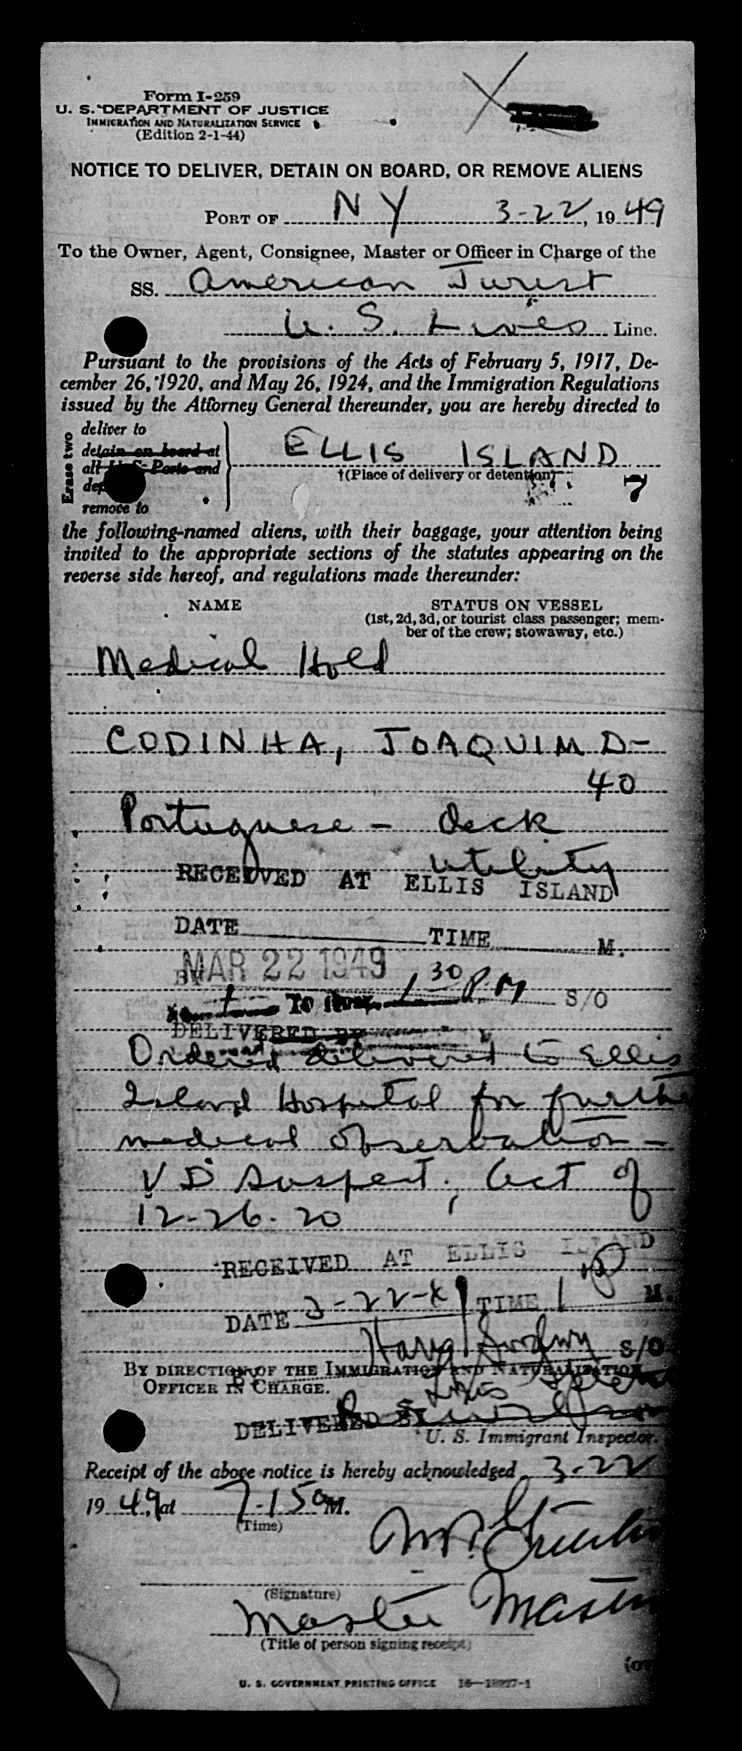 Form I-259
U. S. DEPARTMENT OF JUSTICE
IMMIGRATION AND NATURALIZATION SERVICE
(Edition 2-1-44)
NOTICE TO DELIVER, DETAIN ON BOARD, OR REMOVE ALIENS
PORT OF NY 3-22, 1949
To the Owner, Agent, Consignee, Master or Officer in Charge of the
SS. American Jurist
U. S. Lines Line.
Pursuant to the provisions of the Acts of February 5, 1917, De-
cember 26, 1920, and May 26, 1924, and the Immigration Regulations
issued by the Attorney General thereunder, you are hereby directed to
Erase two
deliver to
detain on board at
all U. S. Ports and
remove to
ELLIS ISLAND
†(Place of delivery or detention)
7
the following-named aliens, with their baggage, your attention being
invited to the appropriate sections of the statutes appearing on the
reverse side hereof, and regulations made thereunder:
NAME STATUS ON VESSEL
(1st, 2d, 3d, or tourist class passenger; mem-
ber of the crew; stowaway, etc.)
Medical Hold
CODINHA, JOAQUIM D-
40
Portuguese - deck
utility
RECEIVED AT ELLIS ISLAND
DATE TIME M.
MAR 22 1949
BY 1 30 PM S/O
DELIVERED BY
Ordered delivered to Ellis
Island Hospital for
medical observation -
VD Suspect; Act of
12-26-20
RECEIVED AT ELLIS ISLAND
DATE 3-22-49 TIME 1 M.
S/O
BY DIRECTION OF THE IMMIGRATION AND NATURALIZATION
OFFICER IN CHARGE.
DELIVERED BY
U. S. Immigrant Inspector.
Receipt of the above notice is hereby acknowledged 3-22
1949, at 7-15 a M.
(Time)
(Signature)
Master
(Title of person signing receipt)
U. S. GOVERNMENT PRINTING OFFICE 16—18927-1